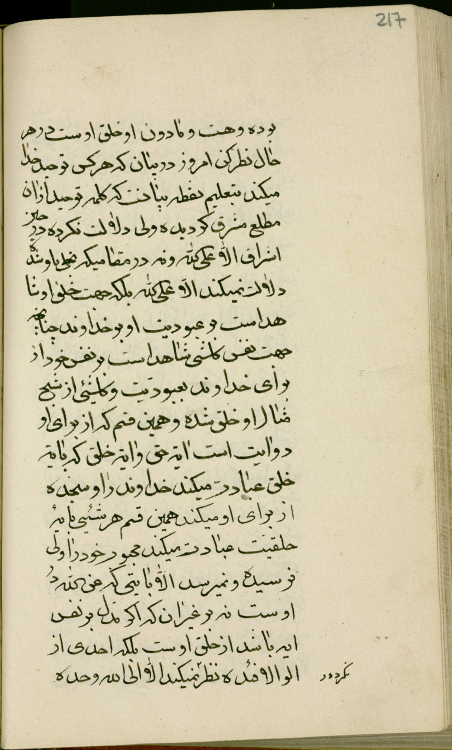 217
بوده وهست و مادون او خلق اوست در هر
حال نظر کن امروز در بیان که هر کس توحید خدا
میکند بتعلیم نقطه بیانست که کلمه توحید از ان
مطلع مشرق گردیده ولی دلالت نکرده در حین
اشراق الا علی الله ونه در مقامیکه تجلی باو شده
دلالت نمیکند الا علی الله بلکه جهت خلق او شا
هد است بر عبودیت او بر خداوند چنانچه
جهت نفس کلشیء شاهد است بر نفس خود از
برای خداوند بعبودیت و کلشیء از شبح
مثال او خلق شده و همین قسم که از برای او
دو ایت است ایة حق وایة خلق که بایة
خلق عبادت میکند خداوند را و سجده
از برای او میکند همین قسم هر شیئی بایهٔ
خلقیت عبادت میکند محبوب خود را ولی
نرسیده ونمیرسد الا بایتی که من الله در
اوست نه بر غیر ان که اگر مدل بر نفس
ایه باشد از خلق اوست بلکه احدی از
الو الافئده نظر نمیکند الا الی الله وحده
نکرده